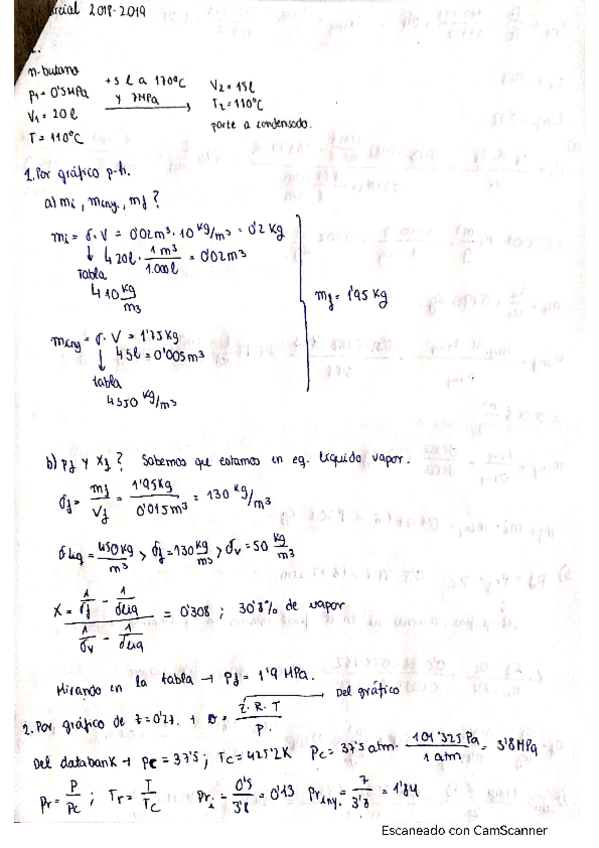 rcial 2018-2019
1.
n-butano
P₁ = 0'5 MPa
V₁ = 20 l
T = 110ºC
+5 l a 170ºC
y 7MPa
V₂ = 15 l
T₂ = 110ºC
parte a condensado.
1. Por gráfico p-h.
a) mi, miny., mf ?
mi = σ · V = 0'02m³ · 10 kg/m³ = 0'2 kg
↳ 20l · 1 m³ / 1.000 l = 0'02 m³
tabla
↳ 10 kg/m³
mf = 1'95 kg
miny = σ · V = 1'75 kg
↳ 5l = 0'005 m³
tabla
↳ 350 kg/m³
b) Pf y Xf ? Sabemos que estamos en eq. líquido vapor.
σf = mf / Vf = 1'95kg / 0'015m³ = 130 kg/m³
σliq = 450 kg/m³ > σf = 130 kg/m³ > σv = 50 kg/m³
X = (1/σf - 1/σliq) / (1/σv - 1/σliq) = 0'308 ; 30'8% de vapor
Mirando en la tabla → Pf = 1'9 MPa.
2. Por gráfico de z = 0'27. + v = z · R · T / P. → Del gráfico
Del databank → pc = 37'5 ; Tc = 425'2K Pc = 37'5 atm · 101'325 Pa / 1 atm = 3'8 MPa
Pr = P / Pc ; Tr = T / Tc Pri = 0'5 / 3'8 = 0'13 Priny. = 7 / 3'8 = 1'84
Escaneado con CamScanner